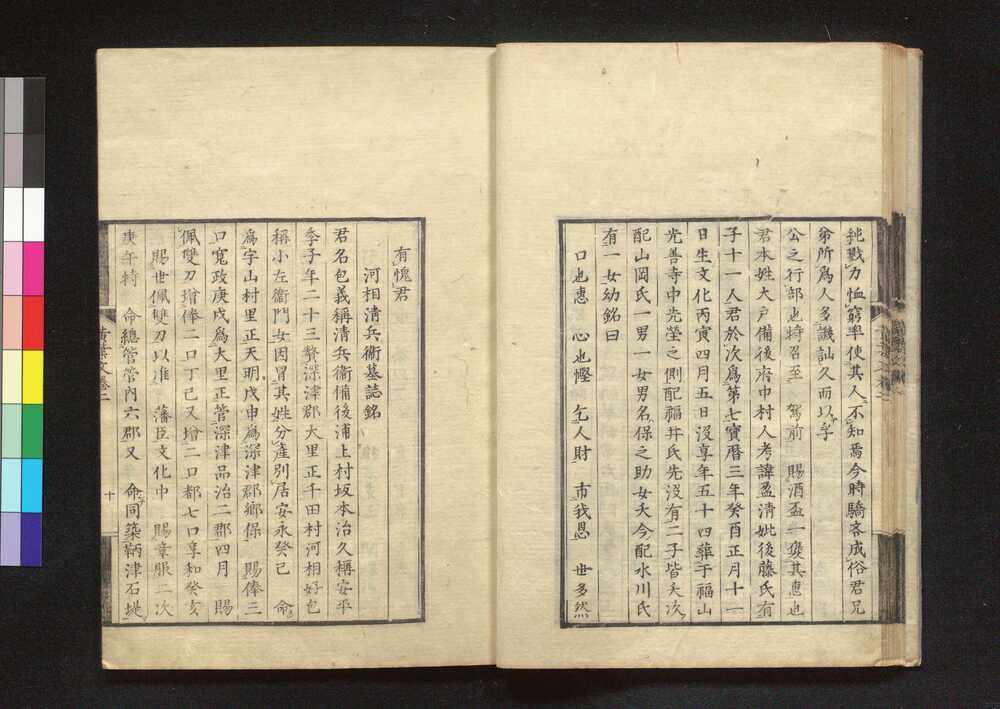 戮力恤窮率使其人不知焉今時驕吝成俗君兄
弟所爲人多譏訕久而以孚
公之行部也特召至 駕前 賜酒盃一褒其惠也
君本姓大戸備後府中村人考諱盈清妣後藤氏有
子十一人君於次爲第七寶曆三年癸酉正月十一
日生文化丙寅四月五日沒享年五十四葬于福山
光善寺中先塋之側配福井氏先沒有二子皆夭次
配山岡氏一男一女男名保之助女夭今配水川氏
有一女幼銘曰
口也惠 心也慳 乞人財 市我恩 世多然
有愧君
河相清兵衞墓誌銘
君名包義稱清兵衞備後浦上村坂本治久稱安平
季子年二十三贅深津郡大里正千田村河相好包
稱小左衞門女因冒其姓分產別居安永癸巳 命
爲字山村里正天明戊申爲深津郡鄉保 賜俸三
口寬政庚戌爲大里正管深津品治二郡四月 賜
佩雙刀增俸二口丁巳又增二口都七口享和癸亥
賜世佩雙刀以准 藩臣文化中 賜章服二次
庚午特 命總管管內六郡又 命同築鞆津石堤
黃葉夕卷二
十